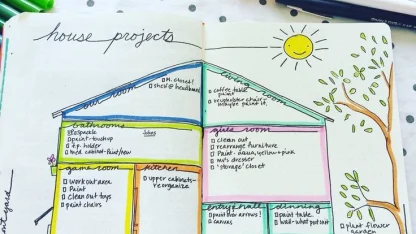 house projects
our room
□ M. closet!
□ shelf@headboard
living room
□ coffee table
paint
□ maybe paint it.
bathrooms
□ paint-touchup
□ t.p. holder
□ med. cabinet-Paint/new
girls room
□ clean out
□ rearrange furniture
□ Paint-aqua, yellow+pink
□ mo's dresser
□ 'storage' closet
game room
□ workout area
□ Paint
□ clean out toys
□ paint chairs
kitchen
□ upper cabinets-
reorganize
entry/hall
□ paint over arrows!
□ canvas
dining
□ paint table
□ wall-what put on it
□ plant flower
garden
yard